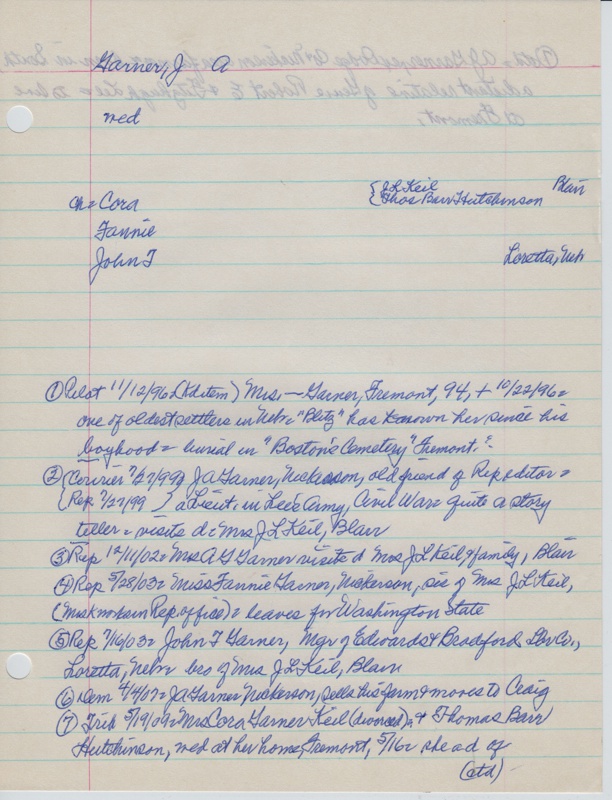 Garner, J A
wed
ch = Cora { J L Keil Blair
{ Thos Barr Hutchinson
Fannie
John T Loretta, Neb
① Pilot 11/12/96 (Ad item) Mrs. — Garner, Fremont, 94, + 10/22/96 =
one of oldest settlers in Neb = "Blitz" has known her since his
boyhood = burial in "Boston's Cemetery" Fremont.?
② { Courier 7/27/99 } J A Garner, Nickerson, old friend of Rep. editor =
{ Rep 7/27/99 } a Lieut. in Lee's Army, Civil War = quite a story
teller = visits d = Mrs J L Keil, Blair
③ Rep 12/11/02 = Mrs A G Garner visits d Mrs J L Keil, & family, Blair
④ Rep 5/28/03 = Miss Fannie Garner, Nickerson, sis of Mrs J L Keil,
(Miss K works in Rep. office) = leaves for Washington State
⑤ Rep 7/16/03 = John T Garner, Mgr of Edwards & Bradford Lbr Co.,
Loretta, Neb = bro of Mrs J L Keil, Blair
⑥ Dem 4/4/07 = J A Garner Nickerson, sells his farm & moves to Craig
⑦ Trib 5/19/09 = Mrs Cora Garner Keil (divorced), & Thomas Barr
Hutchinson, wed at her home, Fremont, 5/16 = she a d of
(ctd)